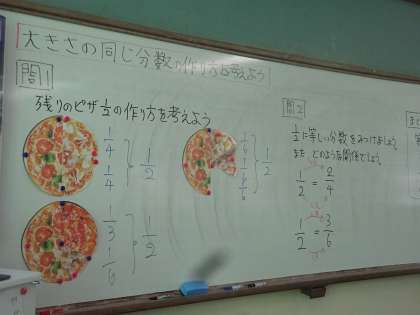 大きさの同じ分数の作り方を考えよう
問1
残りのピザ1/2の作り方を考えよう
1/4
1/4
1/2
1/3
1/6
1/2
1/6
1/6
1/6
1/2
問2
1/2に等しい分数をみつけましょう。
また、どのような関係でしょう。
1/2 = 2/4
1/2 = 3/6